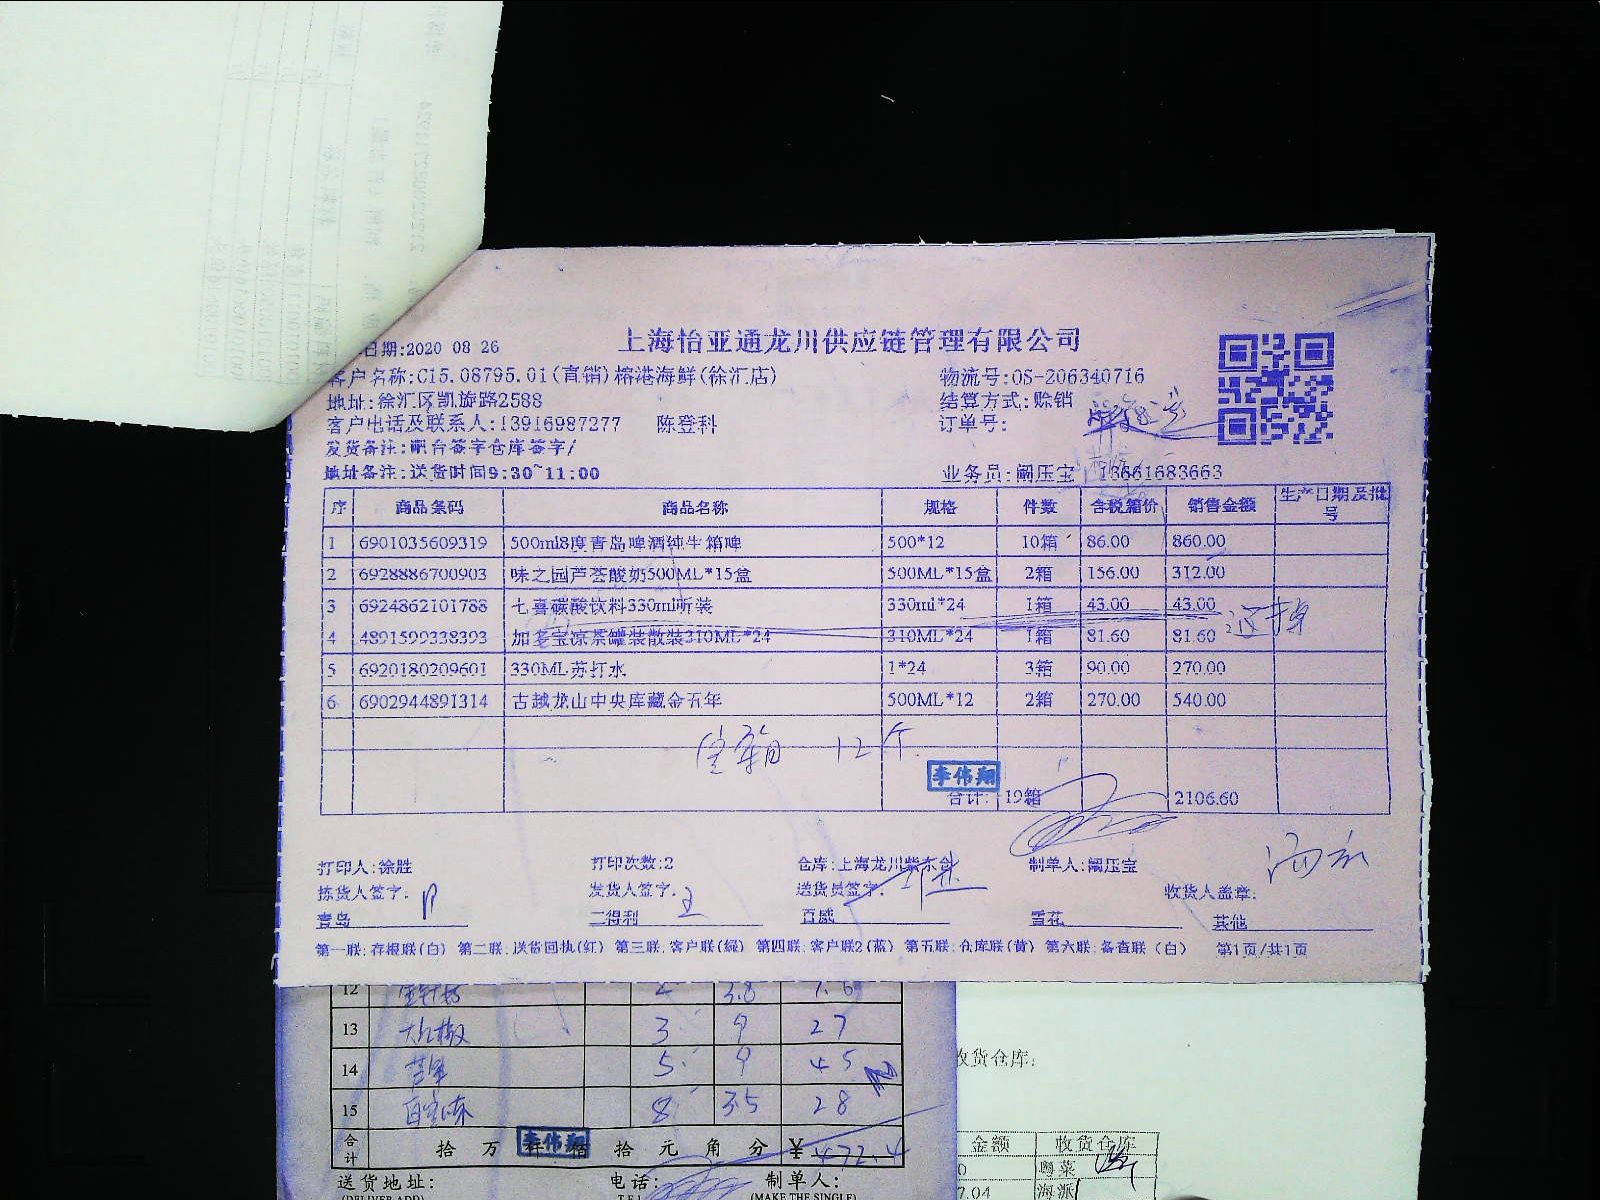 日期:2020 08 26
上海怡亚通龙川供应链管理有限公司
客户名称:C15.08795.01(直销)榕港海鲜(徐汇店)
物流号:OS-206340716
地址:徐汇区凯旋路2588
结算方式:赊销
客户电话及联系人:13916987277 陈登科
订单号:
发货备注:吧台签字仓库签字/
地址备注:送货时间9:30~11:00
业务员:阚压宝 13661683663
序 商品条码 商品名称 规格 件数 含税箱价 销售金额 生产日期及批号
1 6901035609319 500ml8度青岛啤酒纯生箱啤 500*12 10箱 86.00 860.00
2 6928886700903 味之园芦荟酸奶500ML*15盒 500ML*15盒 2箱 156.00 312.00
3 6924862101788 七喜碳酸饮料330ml听装 330ml*24 1箱 43.00 43.00
4 4891599338393 加多宝凉茶罐装散装310ML*24 310ML*24 1箱 81.60 81.60
5 6920180209601 330ML苏打水 1*24 3箱 90.00 270.00
6 6902944891314 古越龙山中央库藏金五年 500ML*12 2箱 270.00 540.00
空箱 12个
李伟翔
合计: 19箱 2106.60
打印人:徐胜 打印次数:2 仓库:上海龙川紫东仓 制单人:阚压宝
拣货人签字: 发货人签字: 王 送货员签字: 收货人盖章:
青岛 三得利 百威 雪花 其他
第一联:存根联(白) 第二联:送货回执(红) 第三联:客户联(绿) 第四联:客户联2(蓝) 第五联:仓库联(黄) 第六联:备查联(白) 第1页/共1页
12 3.8 7.6
13 大红椒 3 9 27
14 5 9 45
15 8 3.5 28
合计 拾 万 仟 佰 拾 元 角 分 ¥ 472.4
李伟翔
送货地址: 电话: 制单人:
(DELIVER ADD) TEL (MAKE THE SINGLE)
收货仓库:
金额 收货仓库
0 粤菜
7.04 海派